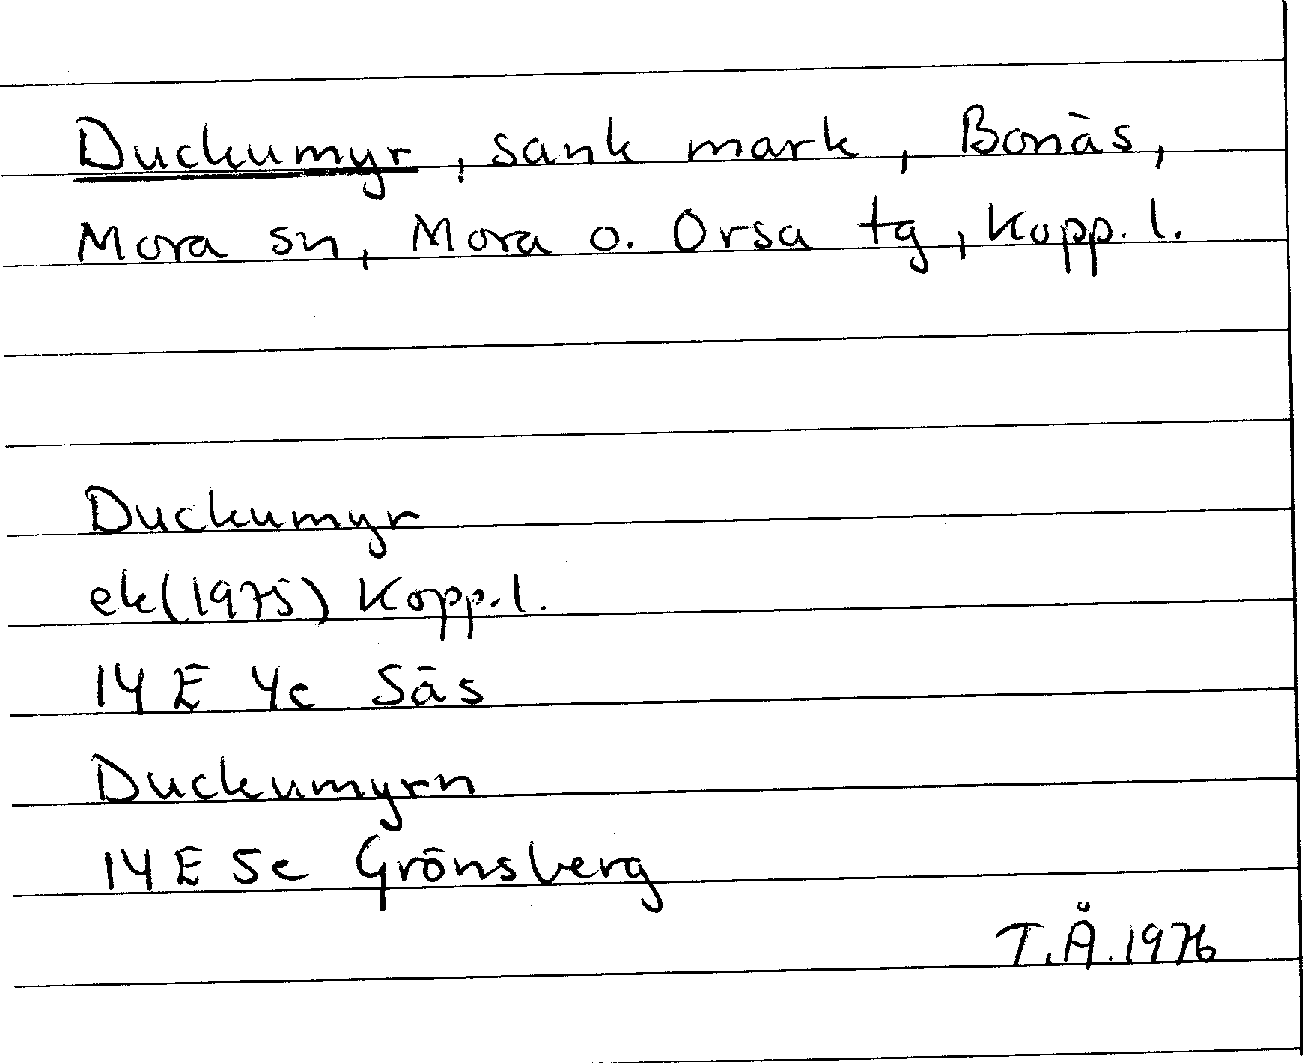 Duckumyr, sank mark, Bonäs,
Mora sn, Mora o. Orsa tg, Kopp. l.
Duckumyr
ek (1975) Kopp. l.
14 E 4c Säs
Duckumyrn
14 E 5c Grönsberg
T.Å. 1976